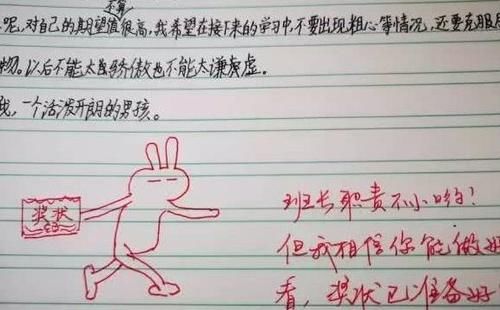 还算
呢,对自己的期望值很高,我希望在接下来的学习中,不要出现粗心等情况,还要克服
物。以后不能太骄傲也不能太谦虚。
我,一个活泼开朗的男孩。
奖状
班长职责不小哟!
但我相信你能做好
看,奖状已准备好